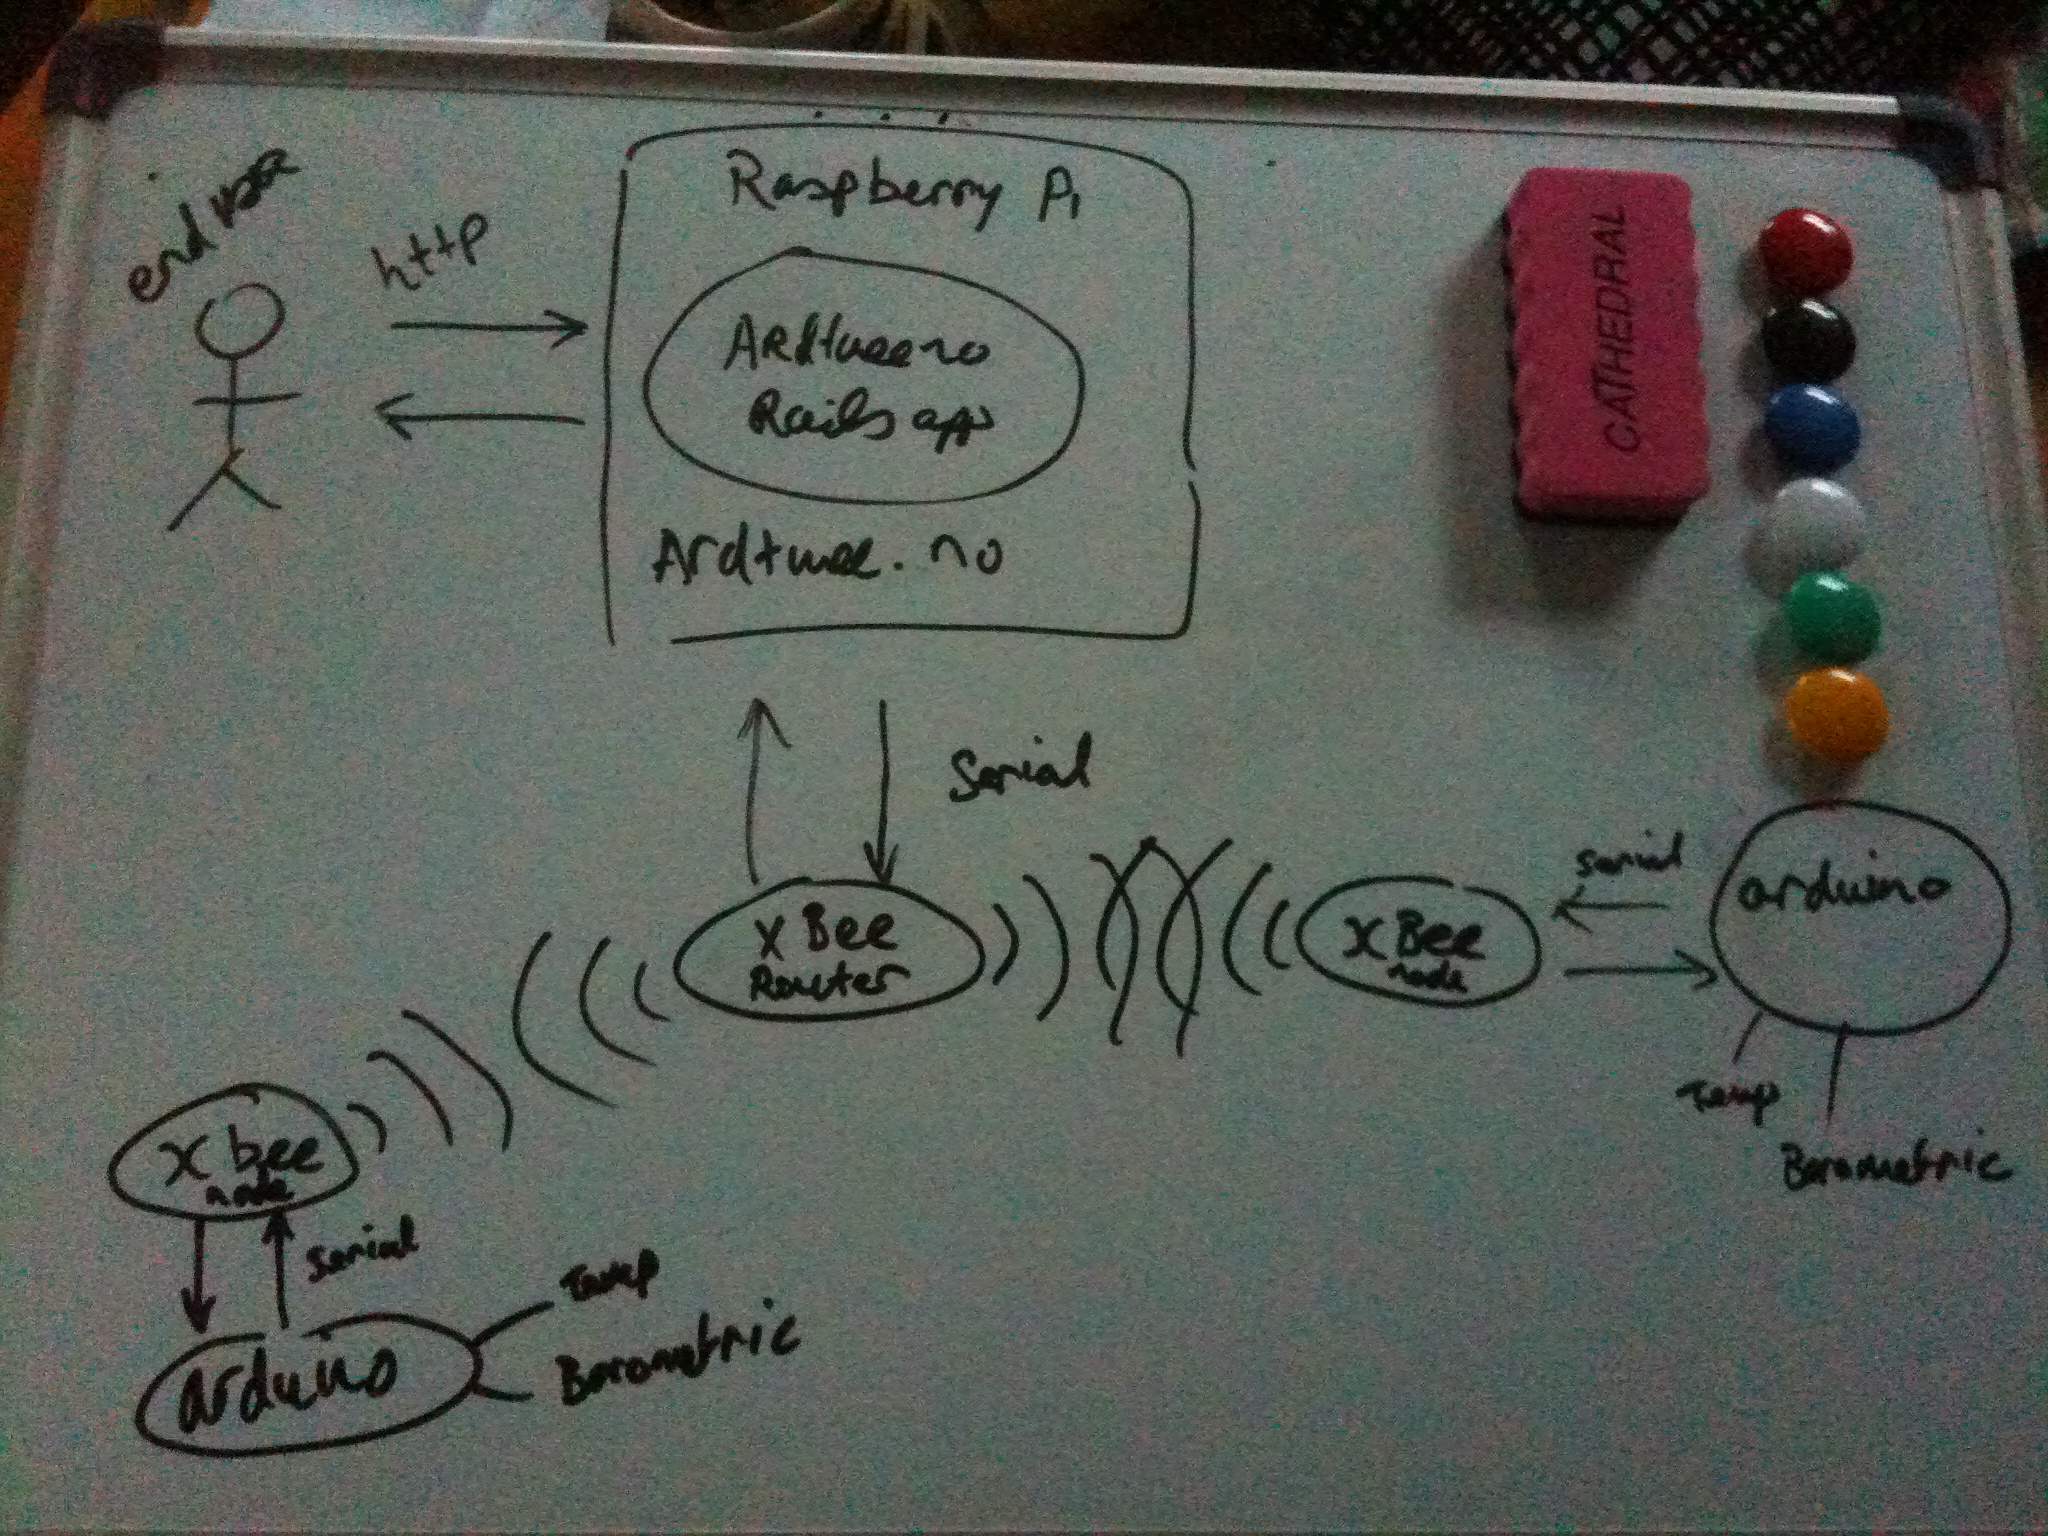 end user
http
Raspberry Pi
Ardtweeno
Rails app
Ardtwee.no
CATHEDRAL
Serial
xBee
Router
xBee
node
serial
arduino
Temp
Barometric
xbee
node
serial
arduino
Temp
Barometric